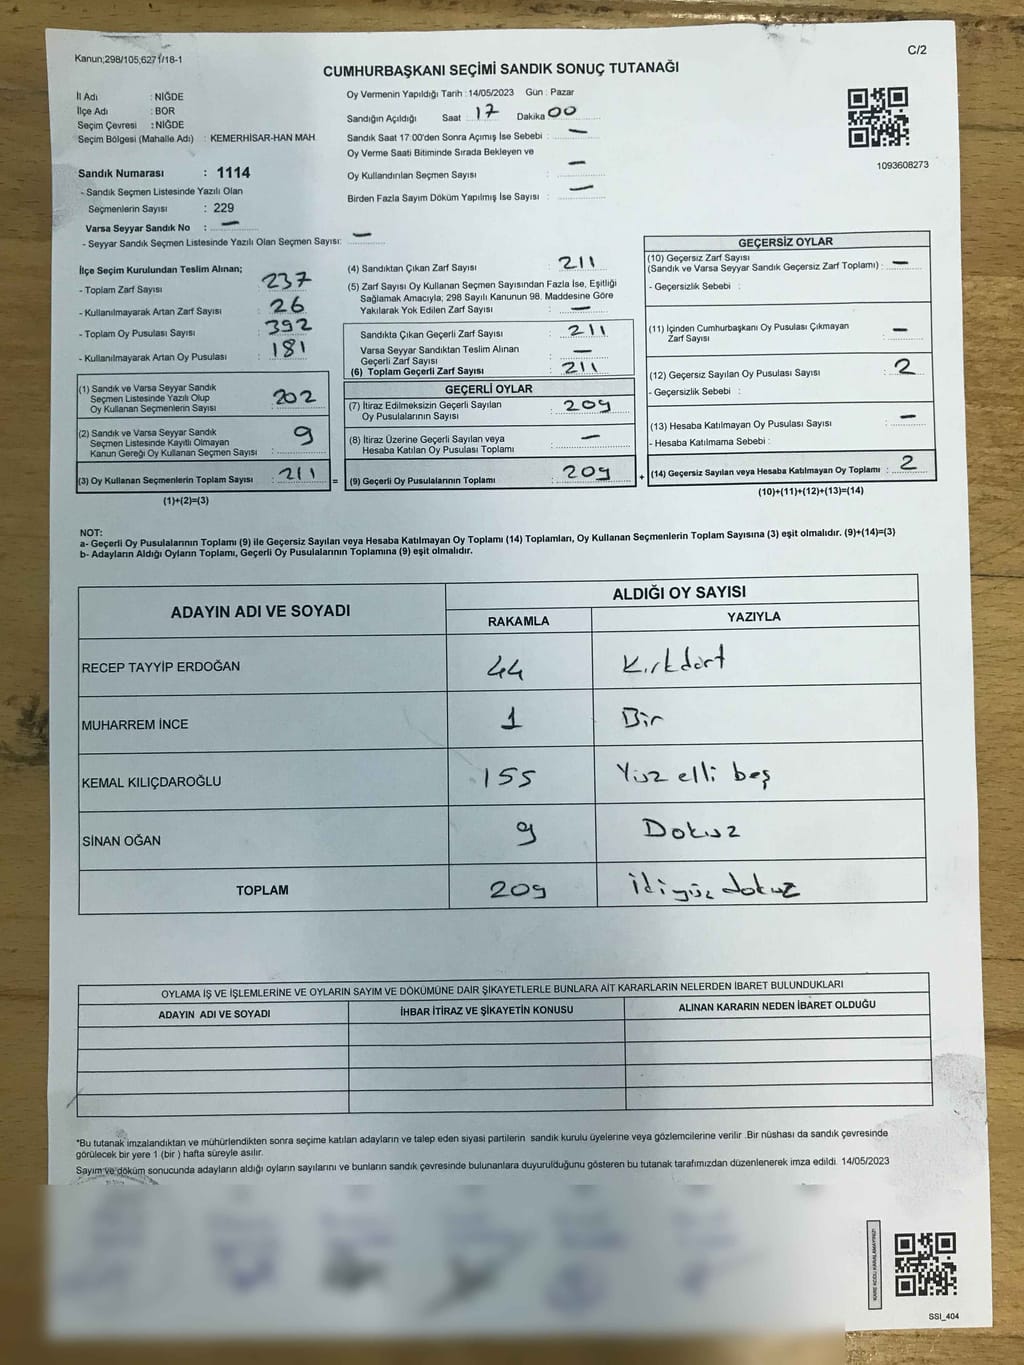 Kanun;298/105,6271/18-1
C/2
CUMHURBAŞKANI SEÇİMİ SANDIK SONUÇ TUTANAĞI
İl Adı : NİĞDE
İlçe Adı : BOR
Seçim Çevresi : NİĞDE
Seçim Bölgesi (Mahalle Adı) : KEMERHİSAR-HAN MAH.
Oy Vermenin Yapıldığı Tarih : 14/05/2023 Gün : Pazar
Sandığın Açıldığı Saat 17 Dakika 00
Sandık Saat 17:00'den Sonra Açımış İse Sebebi : —
Oy Verme Saati Bitiminde Sırada Bekleyen ve
Oy Kullandırılan Seçmen Sayısı : —
Birden Fazla Sayım Döküm Yapılmış İse Sayısı : —
1093608273
Sandık Numarası : 1114
- Sandık Seçmen Listesinde Yazılı Olan
Seçmenlerin Sayısı : 229
Varsa Seyyar Sandık No : —
- Seyyar Sandık Seçmen Listesinde Yazılı Olan Seçmen Sayısı: —
İlçe Seçim Kurulundan Teslim Alınan;
- Toplam Zarf Sayısı : 237
- Kullanılmayarak Artan Zarf Sayısı : 26
- Toplam Oy Pusulası Sayısı : 392
- Kullanılmayarak Artan Oy Pusulası : 181
(1) Sandık ve Varsa Seyyar Sandık
Seçmen Listesinde Yazılı Olup
Oy Kullanan Seçmenlerin Sayısı : 202
(2) Sandık ve Varsa Seyyar Sandık
Seçmen Listesinde Kayıtlı Olmayan
Kanun Gereği Oy Kullanan Seçmen Sayısı : 9
(3) Oy Kullanan Seçmenlerin Toplam Sayısı : 211
(1)+(2)=(3)
(4) Sandıktan Çıkan Zarf Sayısı : 211
(5) Zarf Sayısı Oy Kullanan Seçmen Sayısından Fazla İse, Eşitliği
Sağlamak Amacıyla; 298 Sayılı Kanunun 98. Maddesine Göre
Yakılarak Yok Edilen Zarf Sayısı : —
Sandıkta Çıkan Geçerli Zarf Sayısı : 211
Varsa Seyyar Sandıktan Teslim Alınan
Geçerli Zarf Sayısı : —
(6) Toplam Geçerli Zarf Sayısı : 211
GEÇERLİ OYLAR
(7) İtiraz Edilmeksizin Geçerli Sayılan
Oy Pusulalarının Sayısı : 209
(8) İtiraz Üzerine Geçerli Sayılan veya
Hesaba Katılan Oy Pusulası Toplamı : —
= (9) Geçerli Oy Pusulalarının Toplamı : 209 +
GEÇERSİZ OYLAR
(10) Geçersiz Zarf Sayısı
(Sandık ve Varsa Seyyar Sandık Geçersiz Zarf Toplamı) : —
- Geçersizlik Sebebi :
(11) İçinden Cumhurbaşkanı Oy Pusulası Çıkmayan
Zarf Sayısı : —
(12) Geçersiz Sayılan Oy Pusulası Sayısı : 2
- Geçersizlik Sebebi :
(13) Hesaba Katılmayan Oy Pusulası Sayısı : —
- Hesaba Katılmama Sebebi :
(14) Geçersiz Sayılan veya Hesaba Katılmayan Oy Toplamı : 2
(10)+(11)+(12)+(13)=(14)
NOT:
a- Geçerli Oy Pusulalarının Toplamı (9) ile Geçersiz Sayılan veya Hesaba Katılmayan Oy Toplamı (14) Toplamları, Oy Kullanan Seçmenlerin Toplam Sayısına (3) eşit olmalıdır. (9)+(14)=(3)
b- Adayların Aldığı Oyların Toplamı, Geçerli Oy Pusulalarının Toplamına (9) eşit olmalıdır.
ADAYIN ADI VE SOYADI
ALDIĞI OY SAYISI
RAKAMLA YAZIYLA
RECEP TAYYİP ERDOĞAN 44 Kırkdört
MUHARREM İNCE 1 Bir
KEMAL KILIÇDAROĞLU 155 Yüz elli beş
SİNAN OĞAN 9 Dokuz
TOPLAM 209 İkiyüz dokuz
OYLAMA İŞ VE İŞLEMLERİNE VE OYLARIN SAYIM VE DÖKÜMÜNE DAİR ŞİKAYETLERLE BUNLARA AİT KARARLARIN NELERDEN İBARET BULUNDUKLARI
ADAYIN ADI VE SOYADI İHBAR İTİRAZ VE ŞİKAYETİN KONUSU ALINAN KARARIN NEDEN İBARET OLDUĞU
*Bu tutanak imzalandıktan ve mühürlendikten sonra seçime katılan adayların ve talep eden siyasi partilerin sandık kurulu üyelerine veya gözlemcilerine verilir .Bir nüshası da sandık çevresinde
görülecek bir yere 1 (bir ) hafta süreyle asılır.
Sayım ve döküm sonucunda adayların aldığı oyların sayılarını ve bunların sandık çevresinde bulunanlara duyurulduğunu gösteren bu tutanak tarafımızdan düzenlenerek imza edildi. 14/05/2023
KARE KODU KARALAMAYINIZ!
SSI_404